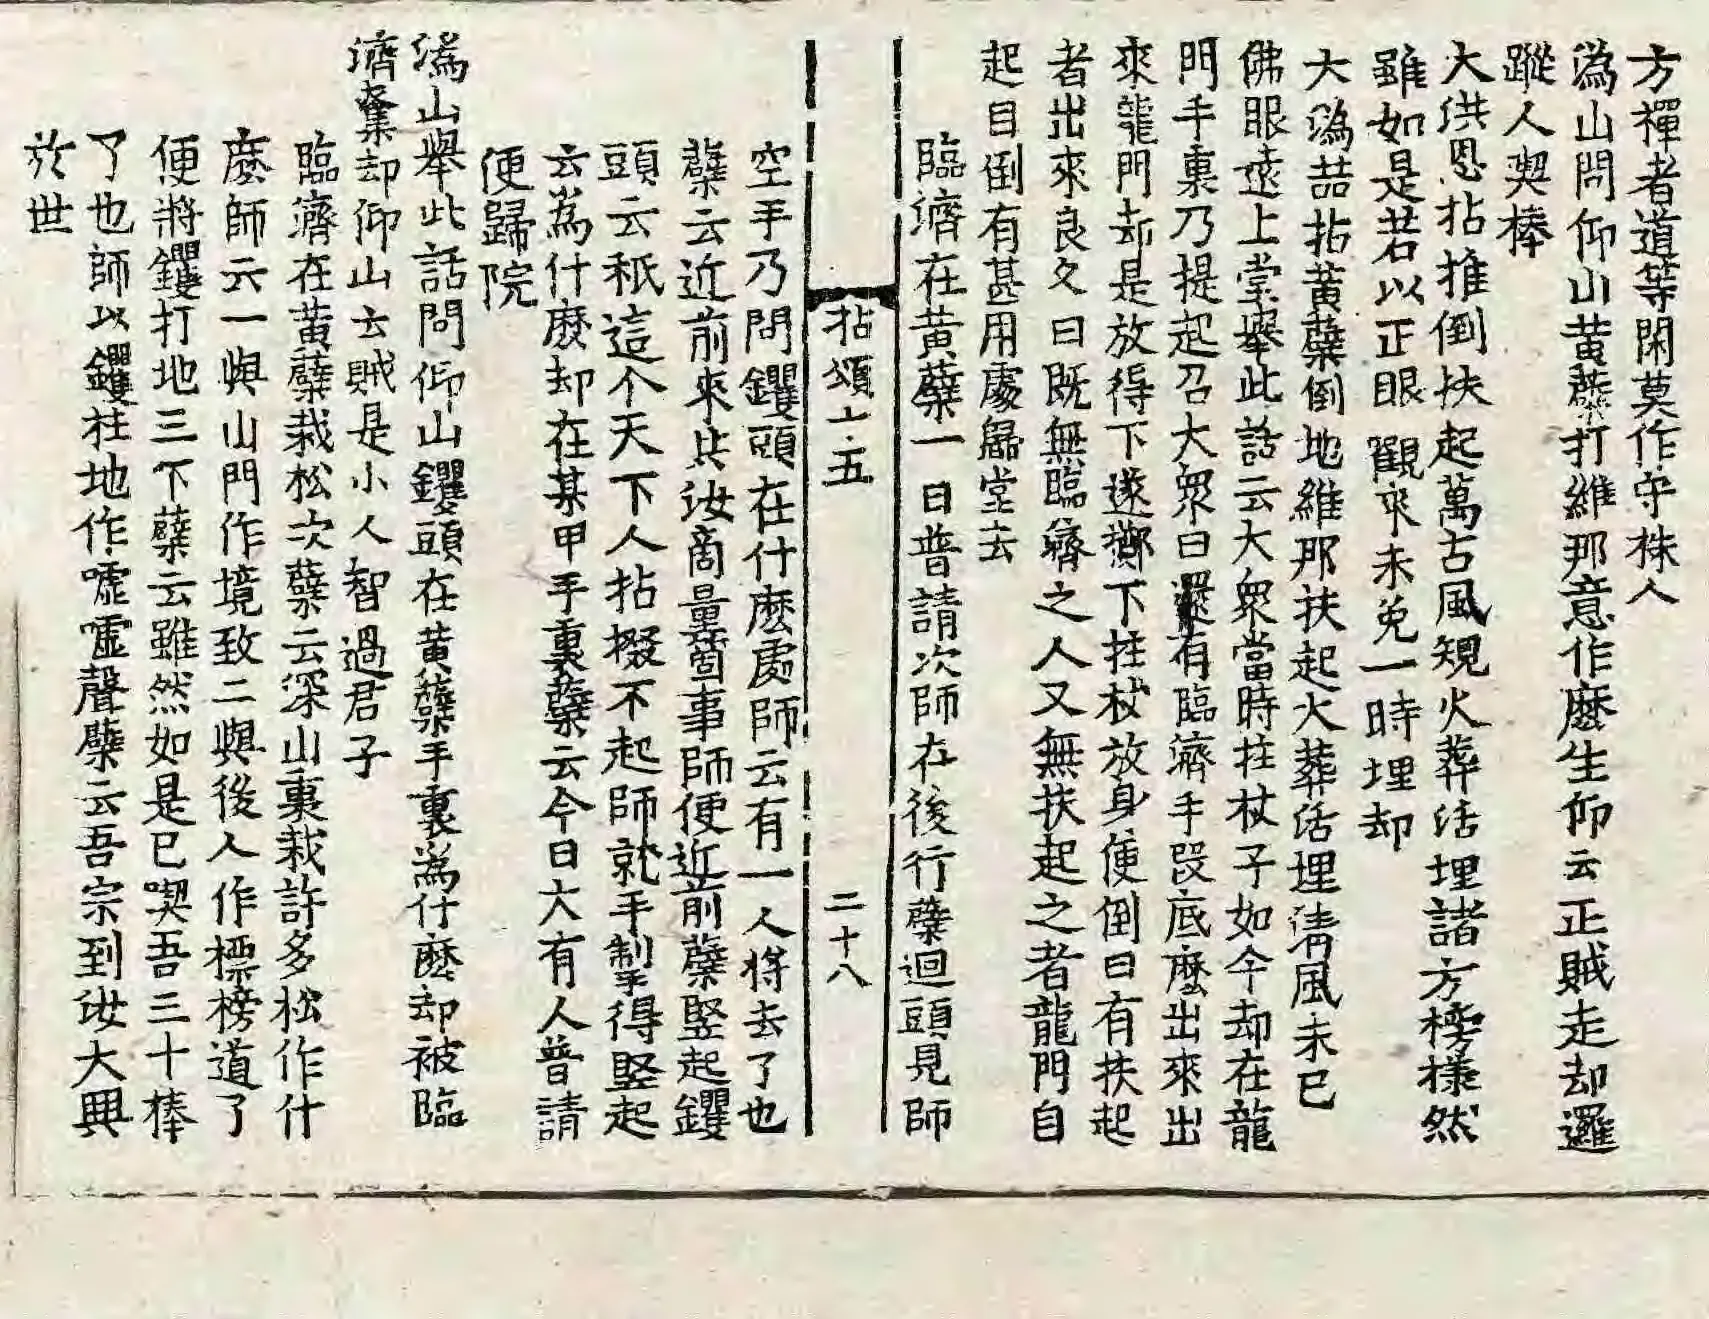 方禪者道等閑莫作守株人
潙山問仰山黃蘗打維那意作麽生仰云正賊走却邏
蹤人喫棒
大洪恩拈推倒扶起萬古風規火葬活埋諸方榜樣然
雖如是若以正眼觀來未免一時埋却
大潙喆拈黃蘗倒地維那扶起火葬活埋淸風未已
佛眼遠上堂擧此話云大衆當時拄杖子如今却在龍
門手裏乃提起召大衆曰還有臨濟手段底麽出來出
來龍門却是放得下遂擲下拄杖放身便倒曰有扶起
者出來良久曰旣無臨濟之人又無扶起之者龍門自
起目倒有甚用處歸堂去
臨濟在黃蘗一日普請次師在後行蘗迴頭見師
拈頌上·五 二十八
空手乃問钁頭在什麽處師云有一人將去了也
蘗云近前來共汝商量箇事師便近前蘗竪起钁
頭云秖這个天下人拈掇不起師就手掣得竪起
云爲什麽却在某甲手裏蘗云今日大有人普請
便歸院
潙山擧此話問仰山钁頭在黃蘗手裏爲什麽却被臨
濟奪却仰山云賊是小人智過君子
臨濟在黃蘗栽松次蘗云深山裏栽許多松作什
麽師云一與山門作境致二與後人作標榜道了
便將钁打地三下蘗云雖然如是已喫吾三十棒
了也師以钁拄地作噓噓聲蘗云吾宗到汝大興
於世